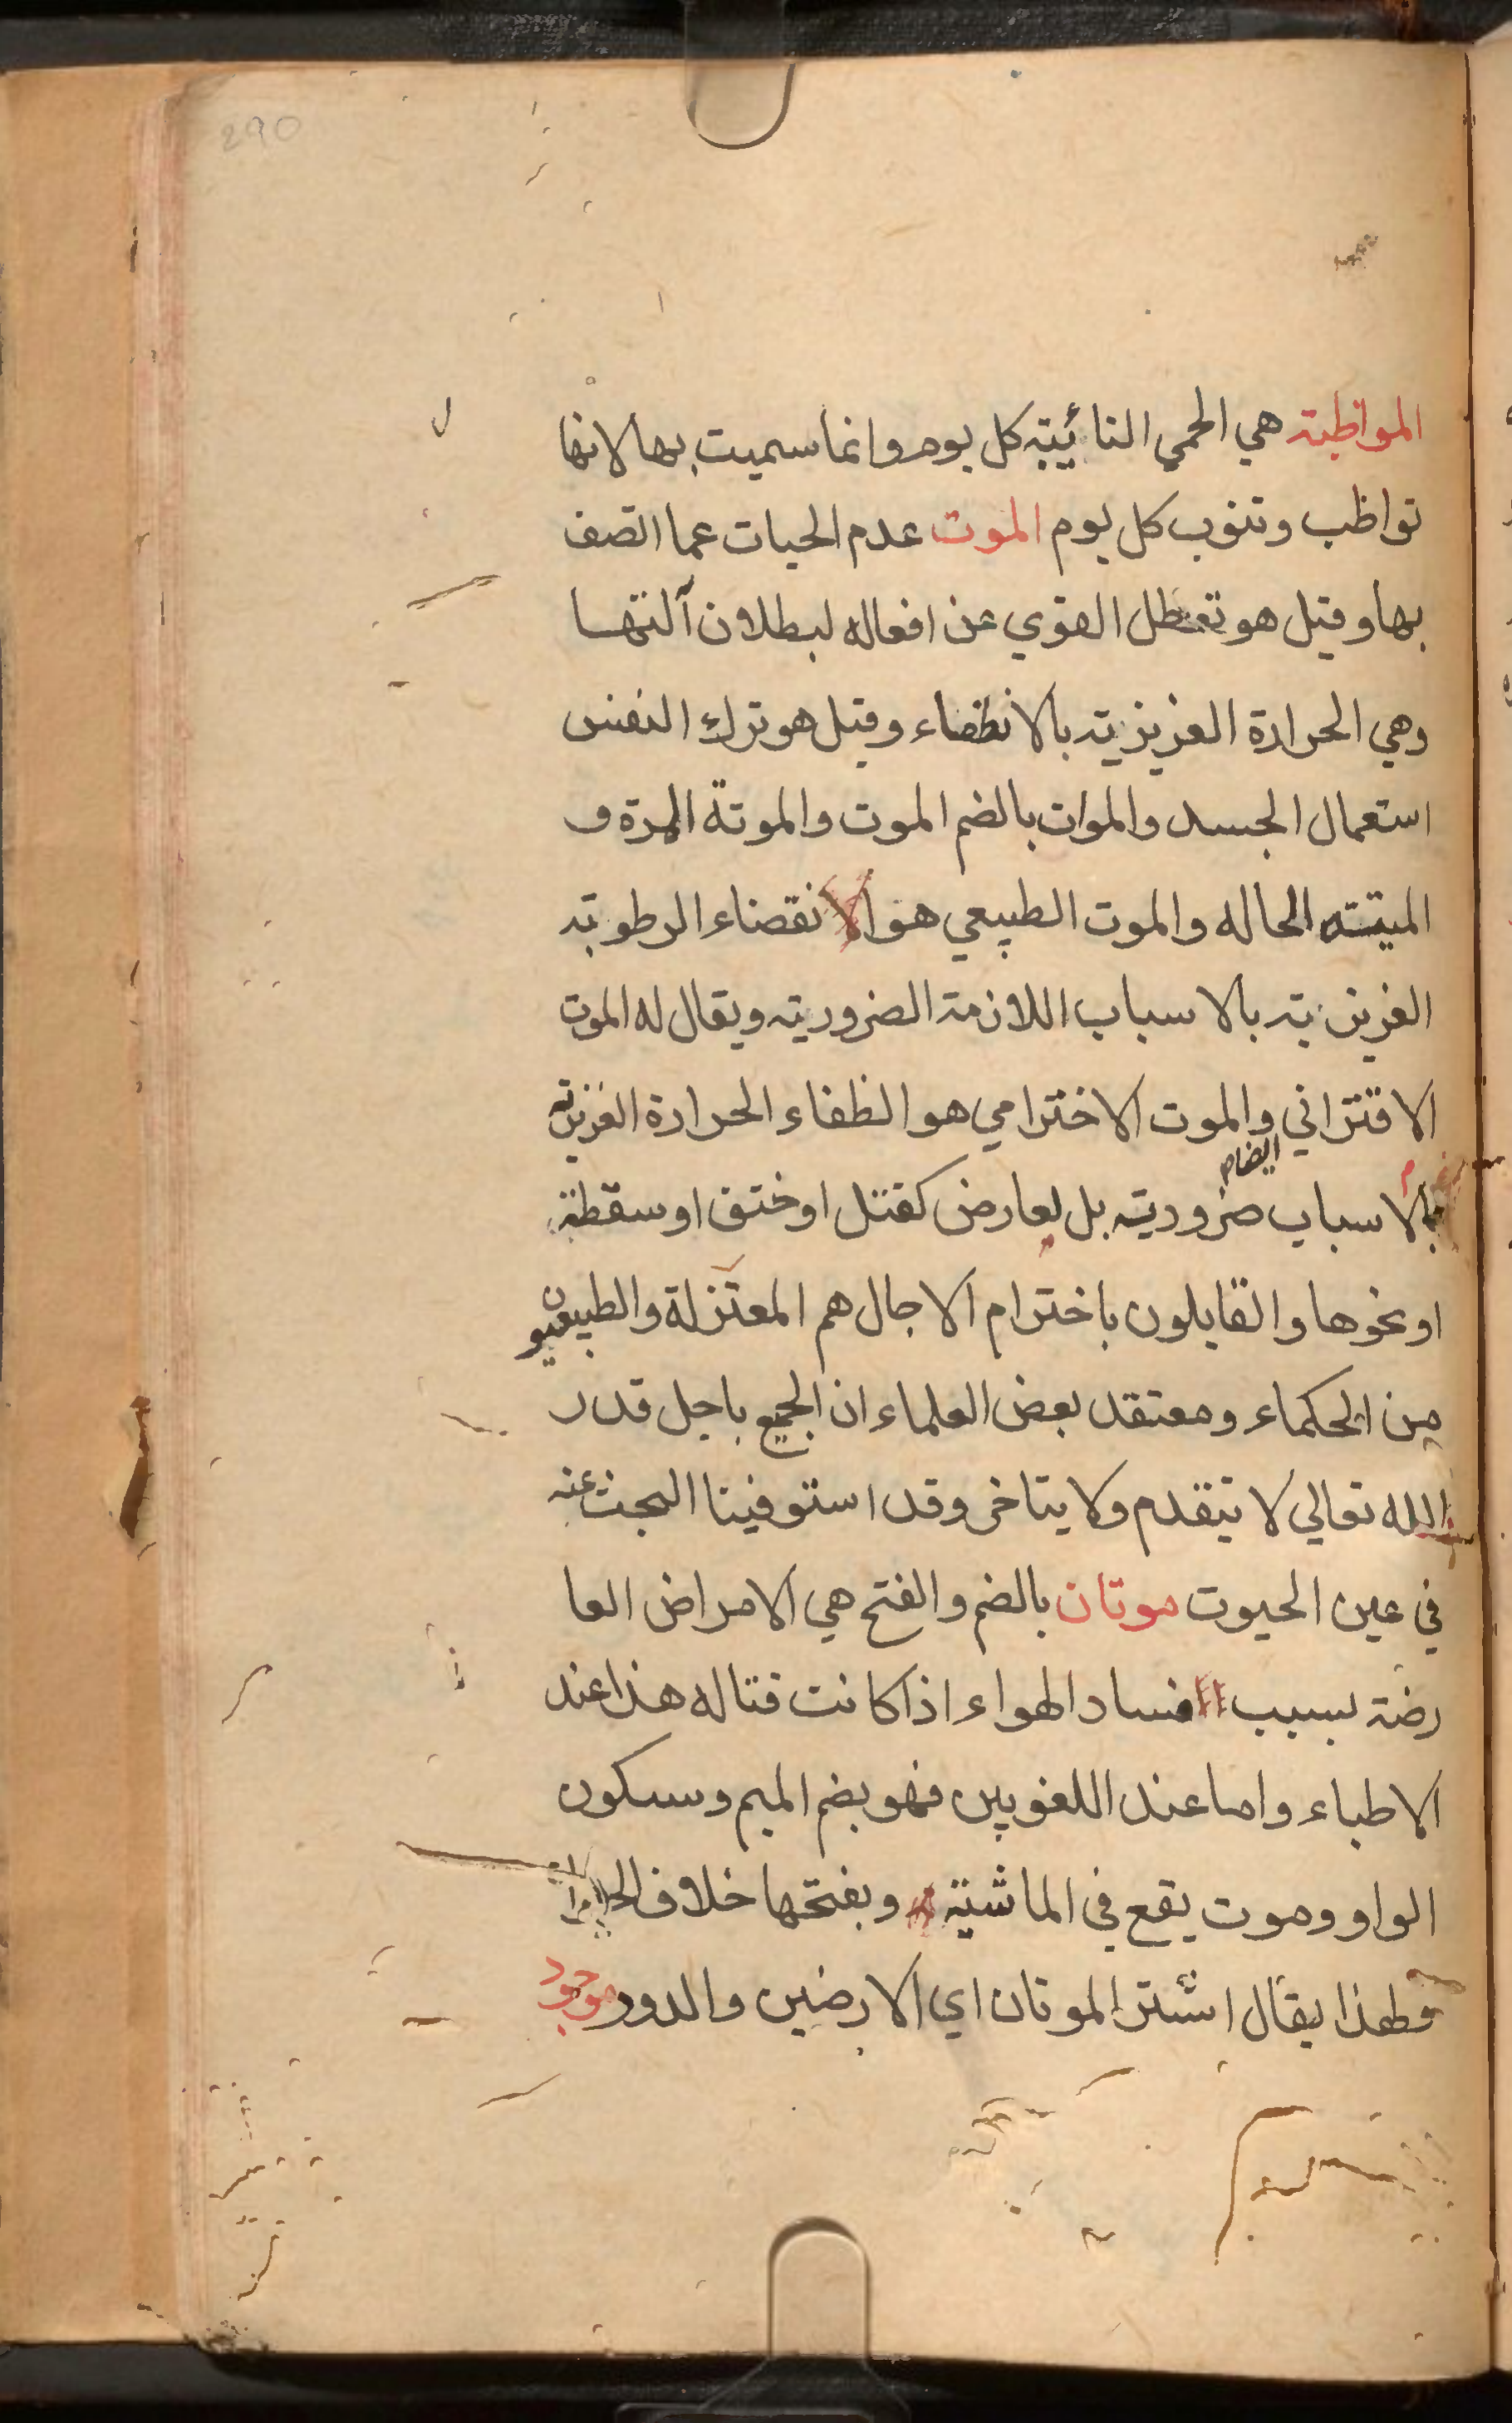 290
المواظبة هي الحمي النائبة كل يوم وانما سميت بها لانها
تواظب وتنوب كل يوم الموت عدم الحيات عما اتصف
بها وقيل هو تعطل القوي عن افعاله لبطلان آلتها
وهي الحرارة الغزيزية بالانطفاء وقيل هو ترك النفس
استعمال الجسد والموات بالضم الموت والموتة المرة و
الميتته الحاله والموت الطبيعي هو الانقضاء الرطوبة
الغزيزية بالاسباب اللازمة الضرورية ويقال له الموت
الاقتراني والموت الاخترامي هو انطفاء الحرارة الغزيزية
بالاسباب ضرورية بل لعارض كقتل او ختق او سقطة
او نحوها والقايلون باخترام الاجال هم المعتزلة والطبيعيون
من الحكماء ومعتقد بعض العلماء ان الجميع باجل قدر
الله تعالي لا يتقدم ولا يتاخر وقد استوفينا البحث عنه
في عين الحيوت موتان بالضم والفتح هي الامراض العا
رضة بسبب فساد الهواء اذا كانت قتاله هذا عند
الاطباء واما عند اللغويين فهو بضم الميم وسكون
الواو وموت يقع في الماشية وبفتحها خلاف
ولهذا يقال اشتر الموتان اي الارضين والدور
موجود